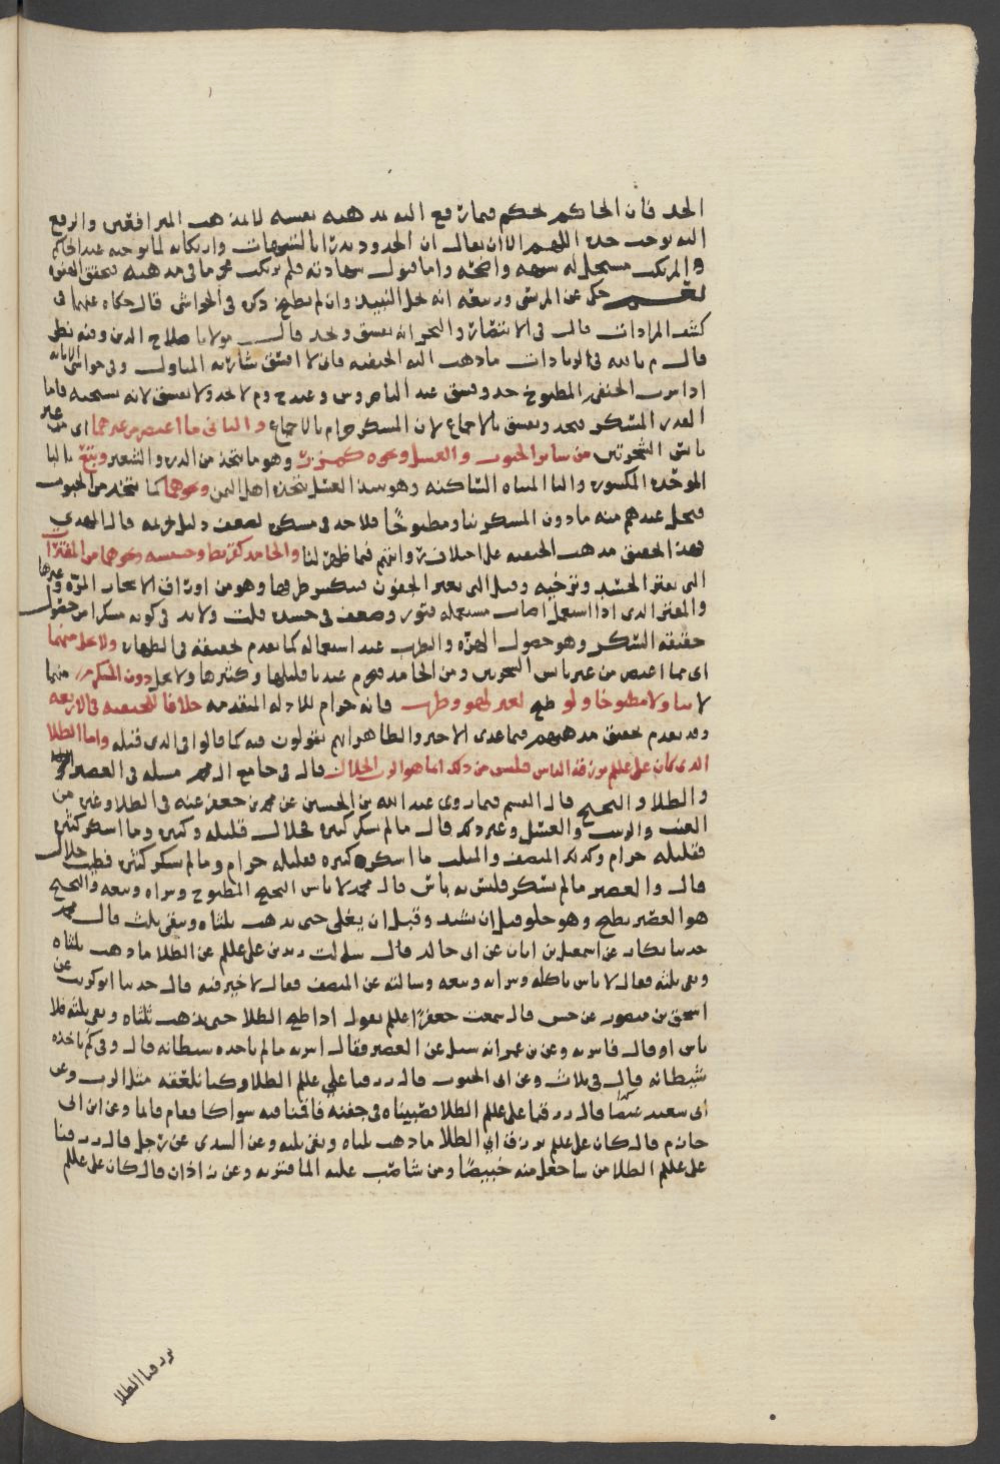 الحد فان الحاكم يحكم فيما ترفع اليه بمذهبه نفسه لا بمذهب المترافعين والرفع
اليه يوجب حده اللهم الا ان يقال ان الحدود تدرا بالشبهات وارتكابه لما يوجبه عند الحاكم
والمرتكب مستحل له شبهه واضحه واما قبول شهادته فلم يرتكب محرما في مذهبه
حكى عن المريسي وربيعه انه يحل النبيذ وان لم يطبخ ذكره في الحواشي قال حكاه عنهما في
كشف المرادات قال في الانتصار والبحر انه يفسق ويحد قال مولانا صلاح الدين وفيه نظر
قال م بالله في الزيادات ما ذهب اليه الحنفيه فاني لا افسق شاربه المتاول وفي حواشي الابانه
اذا شرب الحنفي المطبوخ حد وفسق عند الناصر وس وعند ح وم لا يحد ولا يفسق لانه يستحله فاما
القدر المسكر فيحد ويفسق بالاجماع لان المسكر حرام بالاجماع والثاني ما اعتصر من غيرهما اى من غير
ثاتى الشجرتين من ساير الحبوب والعسل ونحوه كمزر وهو ما يتخذ من الذره والشعير وبتع بالبا
الموحده المكسوره والتا المثناه الساكنه وهو نبيذ العسل يتخذه اهل اليمن ونحوهما كما يتخذ من الحبوب
فيحل عندهم منه ما دون المسكر نيا ومطبوخا فلا حد في مسكره لضعف دليل تحريمه قال المهدي
فهذا تحقيق مذهب الحنفيه على اختلاف وانتم فيما ظهر لنا والجامد كقريط وحشيشه ونحوهما من المفترات
التي تفتر الجسد وترخيه وقيل التي تفتر الجفون فينكسر طرفها وهو من اوراق الاشجار المره وغيرها
والمفتر الذى اذا استعمل اصاب مستعمله فتور وضعف في جسده قلت ولا بد في كونه مسكرا من حصول
حقيقه السكر وهو حصول الهزه والطرب عند استعماله كما تقدم تحقيقه في الطهاره ولا يحل منهما
اى مما اعتصر من غير ثاتى الشجرتين ومن الجامد فيحرم عندنا قليلها وكثيرها ولا يحل دون المسكر منهما
لا نيا ولا مطبوخا ولو طبخ لغير لهو وطرب فانه حرام للادله المتقدمه خلافا للحنفيه في الاربعه
وقد تقدم تحقيق مذهبهم فيما عدى الاخير والظاهر انهم يقولون فيه كما قالوا في الذى قبله واما الطلا
الذى كان على عللم يرزقه الناس فليس من ذلك انما هو الرب الحلال قال في جامع ال محمد مسله في العصير
والطلا والبختج قال القسم فيما روى عبد الله بن الحسين عن محمد بن جعفر عنه في الطلا وغيره من
العنب والزبيب والعسل وغير ذلك قال ما لم يسكر كثيره فحلال قليله وكثيره وما اسكر كثيره
فقليله حرام وكذلك المنصف والمثلث ما اسكر كثيره فقليله حرام وما لم يسكر كثيره فطيب حلال
قال والعصير ما لم يسكر فليس به باس قال محمد لا باس البختج المطبوخ وشراه وبيعه والبختج
هو العصير يطبخ وهو حلو قبل ان يشتد وقبل ان يغلى حتى يذهب ثلثاه ويبقى ثلث قال محمد
حدثنا بكار عن اسمعيل بن ابان عن ابى خالد قال سالت زيد بن على عللم عن الطلا ما ذهب ثلثاه
وبقى ثلثه فقال لا باس باكله وشرابه وبيعه وسالته عن المنصف فقال لا خير فيه قال حدثنا ابو كريب عن
اسحق بن منصور عن حسن قال سمعت جعفرا عللم يقول اذا طبخ الطلا حتى يذهب ثلثاه ويبقى ثلثه فلا
باس او قال فاشربه وعن بن عمر انه سئل عن العصير فقال اشربه ما لم ياخذه شيطانه قال وفي كم ياخذه
شيطانه قال في ثلاث وعن ابى الحبوب قال رزقنا على عللم الطلا وكنا نلعقه مثل الرب وعن
ابى سعيد عيصا قال رزقنا على عللم الطلا فصببناه في جفنه فاقمنا فيه سواكا فقام قايما وعن ابن ابى
حازم قال كان على عللم يرزق ابى الطلا ما ذهب ثلثاه وبقى ثلثه وعن السدى عن رجل قال رزقنا
على عللم الطلا من شا جعل منه خبيصا ومن شا صب عليه الما فشربه وعن زاذان قال كان على عللم
يرزقنا الطلا